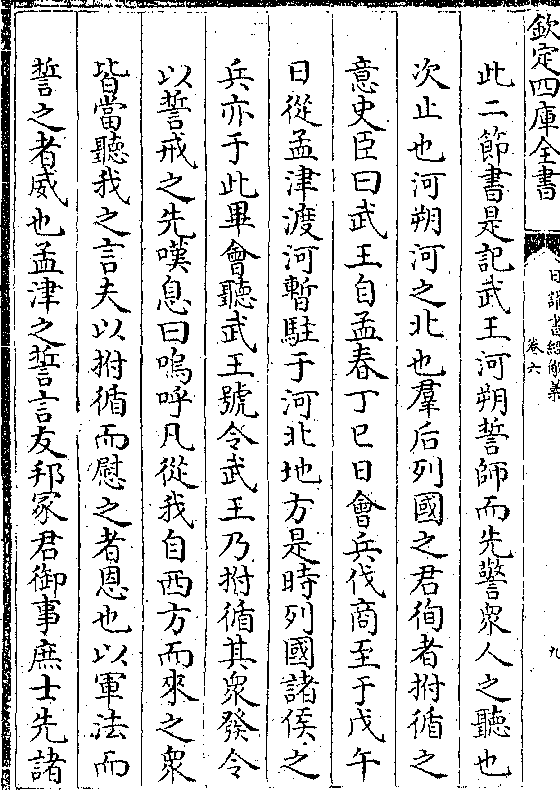 欽定四庫全書
日講書經解義
卷六
九
此二節書是記武王河朔誓師而先警衆人之聽也
次止也河朔河之北也羣后列國之君徇者拊循之
意史臣曰武王自孟春丁巳日會兵伐商至于戊午
日從孟津渡河暫駐于河北地方是時列國諸侯之
兵亦于此畢會聽武王號令武王乃拊循其衆發令
以誓戒之先嘆息曰嗚呼凡從我自西方而來之衆
皆當聽我之言夫以拊循而慰之者恩也以軍法而
誓之者威也孟津之誓言友邦冢君御事庶士先諸